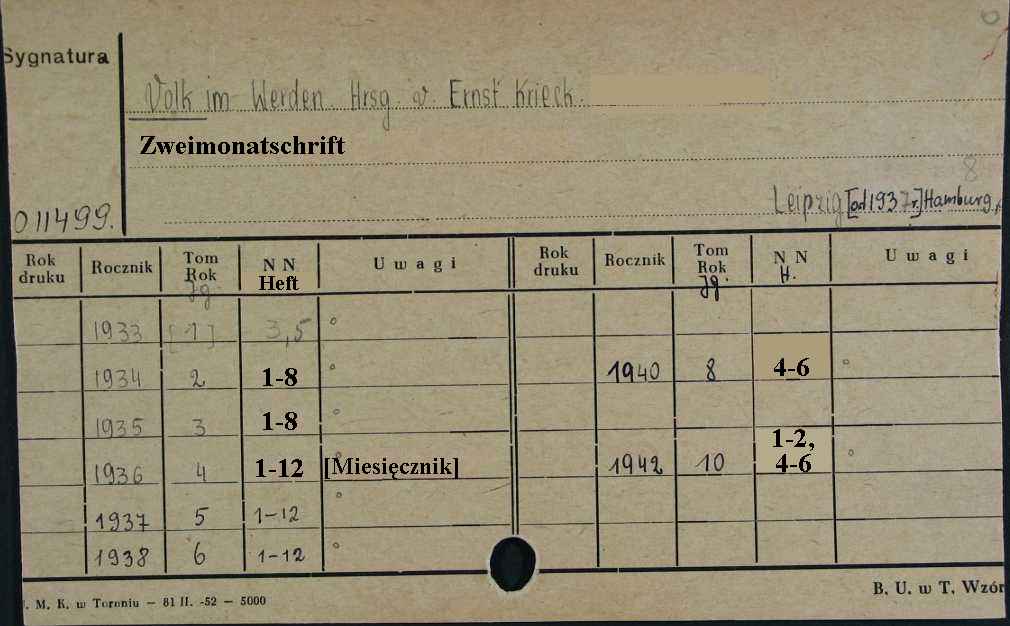 Sygnatura
Volk im Werden. Hrsg. v. Ernst Krieck.
Zweimonatschrift
8
Leipzig [od 1937 r.] Hamburg,
011499.
Rok druku Rocznik Tom Rok Jg. N N Heft Uwagi Rok druku Rocznik Tom Rok Jg. N N H. Uwagi
1933 [1] 3,5
1934 2 1-8 1940 8 4-6
1935 3 1-8
1936 4 1-12 [Miesięcznik] 1942 10 1-2, 4-6
1937 5 1-12
1938 6 1-12
. M. K. w Toruniu — 81 II. -52 — 5000
B. U. w T. Wzór